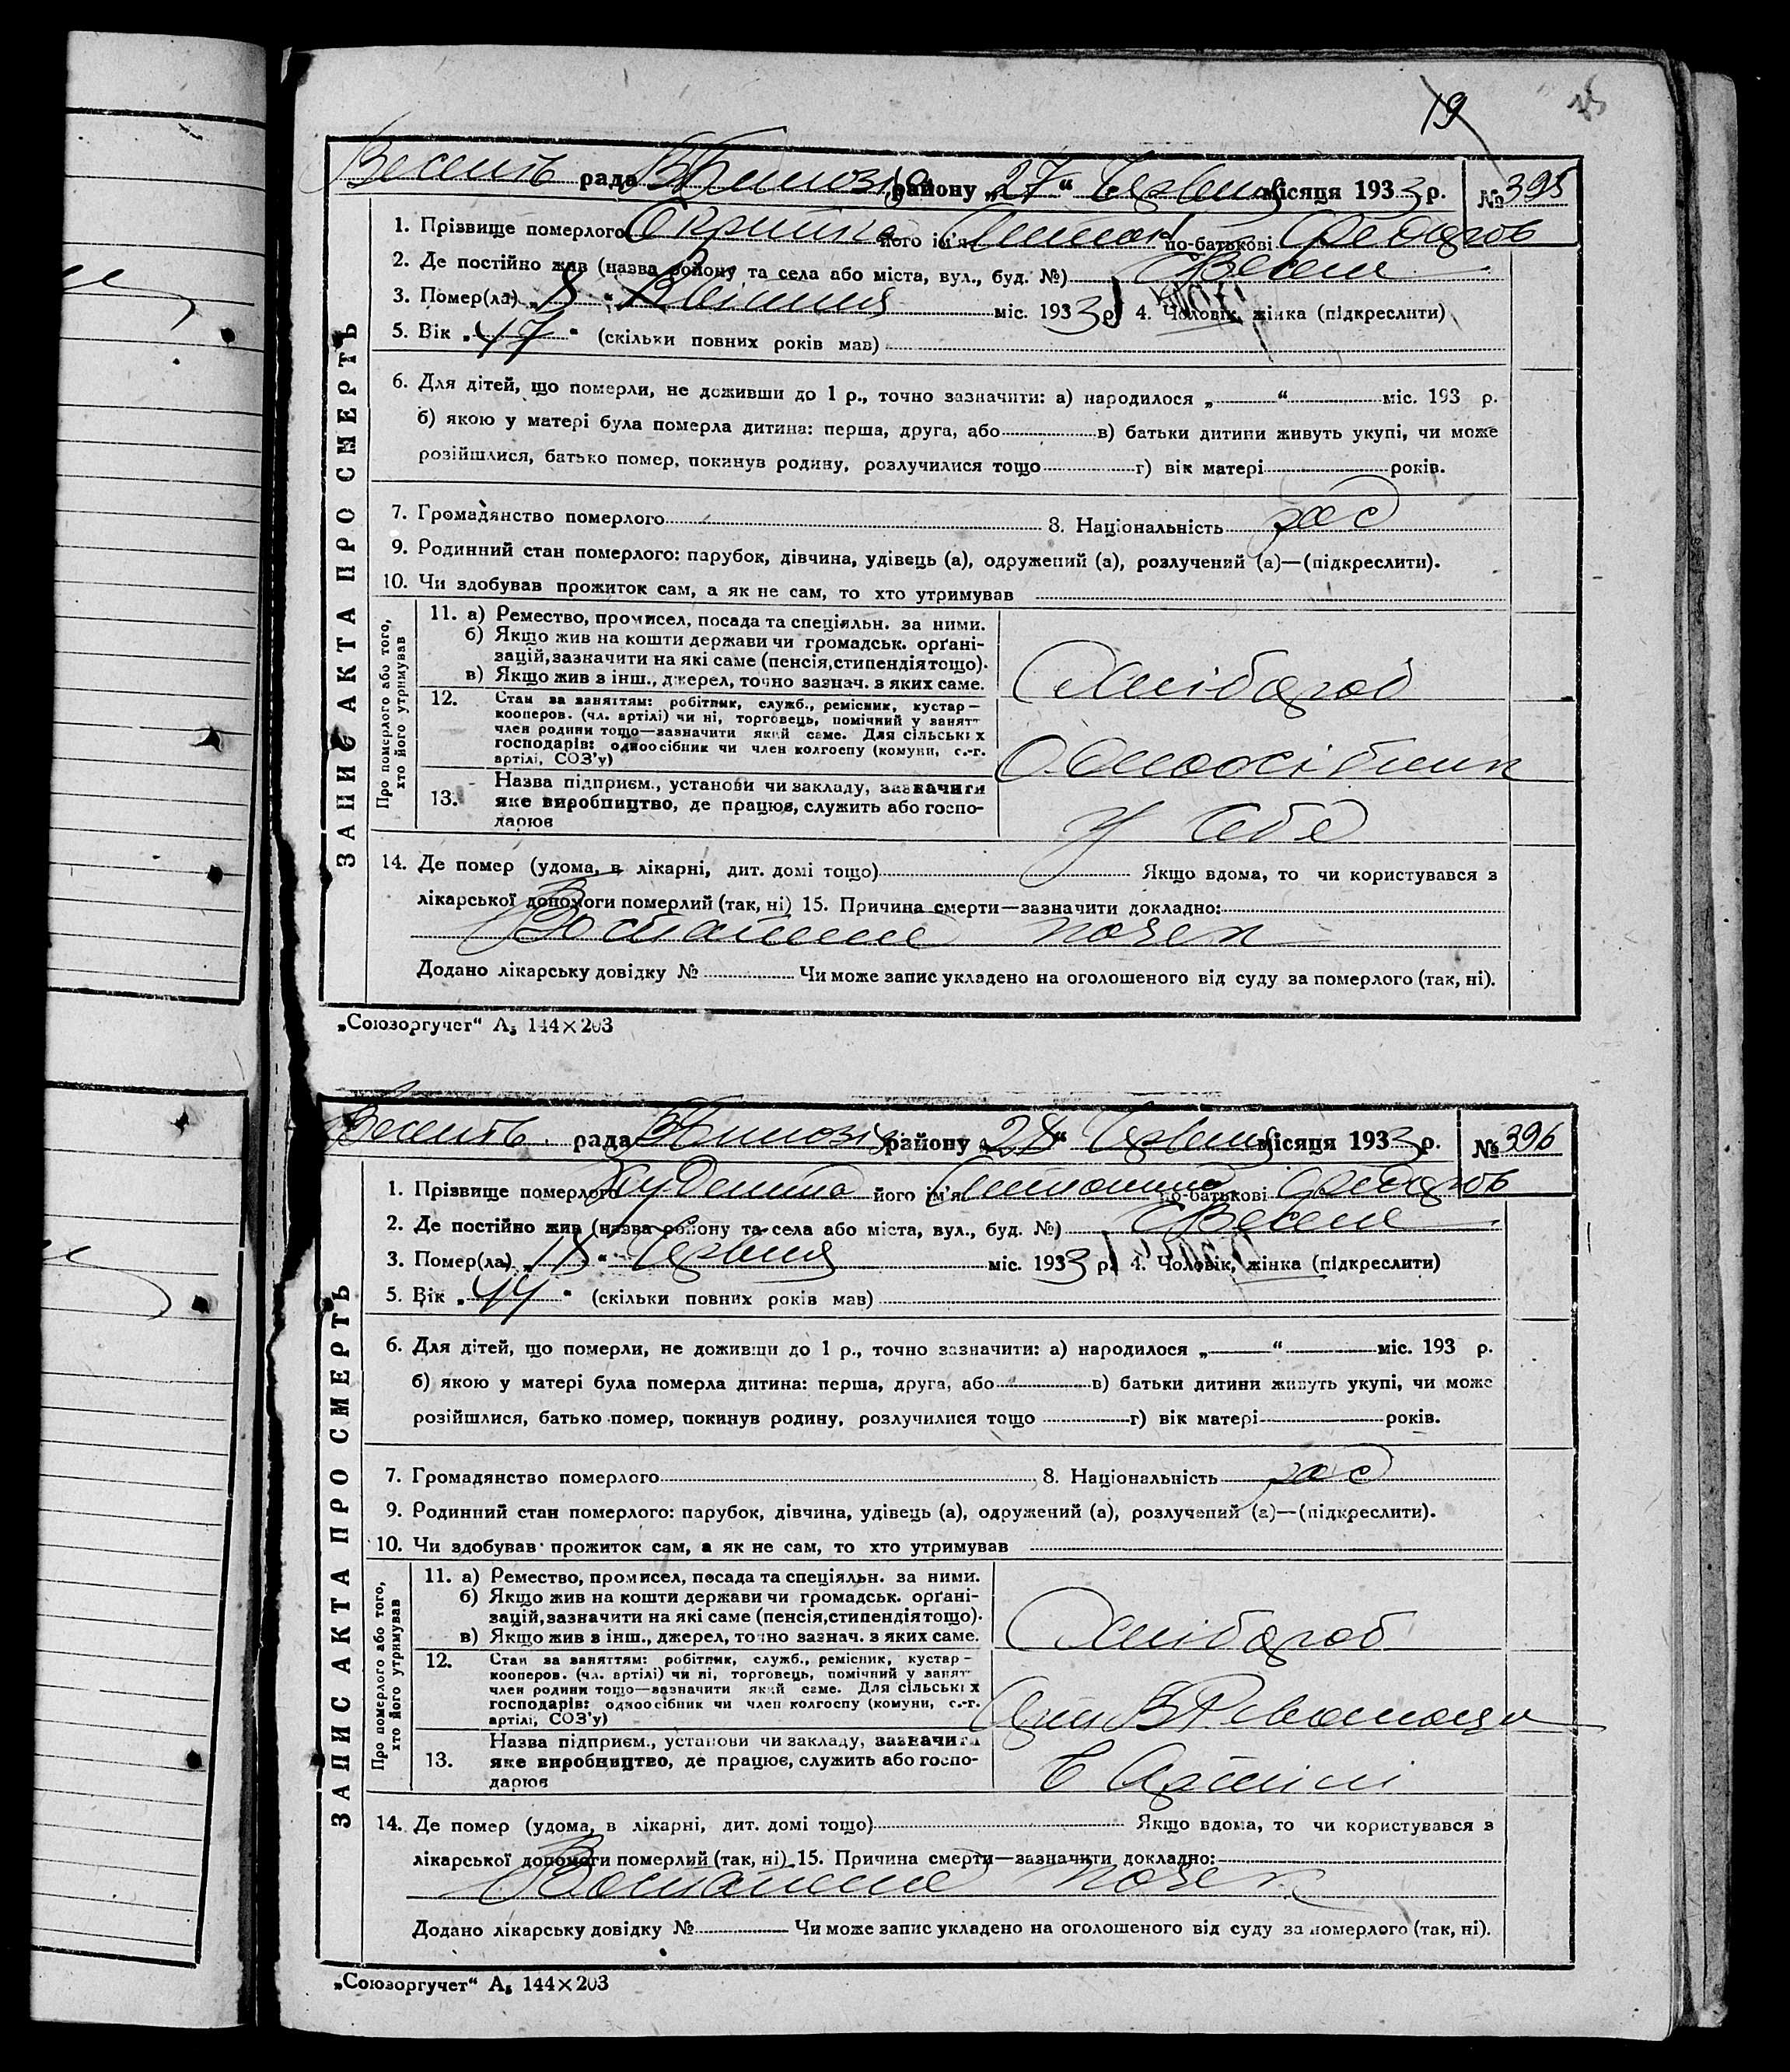 19
рада району „27“ Червня місяця 1933 р. № 395
1. Прізвище померлого його ім'я по-батькові Федоров
2. Де постійно жив (назва району та села або міста, вул., буд. №) с Веселе
3. Помер(ла) „8“ Квітня міс. 1933 р. 4. Чоловік, жінка (підкреслити)
5. Вік „47“ (скільки повних років мав)
6. Для дітей, що померли, не доживши до 1 р., точно зазначити: а) народилося „ “ міс. 193 р.
б) якою у матері була померла дитина: перша, друга, або в) батьки дитини живуть укупі, чи може
розійшлися, батько помер, покинув родину, розлучилися тощо г) вік матері років.
7. Громадянство померлого 8. Національність рос
9. Родинний стан померлого: парубок, дівчина, удівець (а), одружений (а), розлучений (а)—(підкреслити).
10. Чи здобував прожиток сам, а як не сам, то хто утримував
ЗАПИС АКТА ПРО СМЕРТЬ
Про померлого або того,
хто його утримував
11. а) Ремество, промисел, посада та спеціяльн. за ними.
б) Якщо жив на кошти держави чи громадськ. орґані-
зацій, зазначити на які саме (пенсія, стипендія тощо).
в) Якщо жив з інш., джерел, точно зазнач. з яких саме.
Хлібороб
12. Стан за заняттям: робітник, служб., ремісник, кустар—
кооперов. (чл. артілі) чи ні, торговець, помічний у занятт
член родини тощо—зазначити який саме. Для сільських
господарів: одноосібник чи член колгоспу (комуни, с.-г.
артілі, СОЗ'у)
Одноосібник
13. Назва підприєм., установи чи закладу, зазначити
яке виробництво, де працює, служить або госпо-
дарює
У себе
14. Де помер (удома, в лікарні, дит. домі тощо) Якщо вдома, то чи користувався з
лікарської допомоги померлий (так, ні) 15. Причина смерти—зазначити докладно:
Воспаление почек
Додано лікарську довідку № Чи може запис укладено на оголошеного від суду за померлого (так, ні).
„Союзоргучет“ А₅ 144×203
рада району „28“ Червня місяця 1933 р. № 396
1. Прізвище померлого його ім'я по-батькові Федоров
2. Де постійно жив (назва району та села або міста, вул., буд. №) с Веселе
3. Помер(ла) „18“ Червня міс. 1933 р. 4. Чоловік, жінка (підкреслити)
5. Вік „44“ (скільки повних років мав)
6. Для дітей, що померли, не доживши до 1 р., точно зазначити: а) народилося „ “ міс. 193 р.
б) якою у матері була померла дитина: перша, друга, або в) батьки дитини живуть укупі, чи може
розійшлися, батько помер, покинув родину, розлучилися тощо г) вік матері років.
7. Громадянство померлого 8. Національність рос
9. Родинний стан померлого: парубок, дівчина, удівець (а), одружений (а), розлучений (а)—(підкреслити).
10. Чи здобував прожиток сам, а як не сам, то хто утримував
ЗАПИС АКТА ПРО СМЕРТЬ
Про померлого або того,
хто його утримував
11. а) Ремество, промисел, посада та спеціяльн. за ними.
б) Якщо жив на кошти держави чи громадськ. орґані-
зацій, зазначити на які саме (пенсія, стипендія тощо).
в) Якщо жив з інш., джерел, точно зазнач. з яких саме.
Хлібороб
12. Стан за заняттям: робітник, служб., ремісник, кустар—
кооперов. (чл. артілі) чи ні, торговець, помічний у занятт
член родини тощо—зазначити який саме. Для сільських
господарів: одноосібник чи член колгоспу (комуни, с.-г.
артілі, СОЗ'у)
13. Назва підприєм., установи чи закладу, зазначити
яке виробництво, де працює, служить або госпо-
дарює
в Артілі
14. Де помер (удома, в лікарні, дит. домі тощо) Якщо вдома, то чи користувався з
лікарської допомоги померлий (так, ні) 15. Причина смерти—зазначити докладно:
Воспаление почек
Додано лікарську довідку № Чи може запис укладено на оголошеного від суду за померлого (так, ні).
„Союзоргучет“ А₅ 144×203